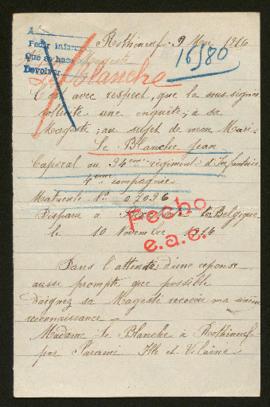 A
Pedir infor
Que se hace
Devolver
Rothéneuf 9 1916
16980
Leblanche
C'est avec respect, que la sous-signée
sollicite une enquête, à sa
Majesté; au sujet de mon Mari
Le Blanche Jean
Caporal au 94eme régiment d'Infanterie
4eme compagnie
Matricule No 07036
Disparu à Belgique
le 10 Novembre 1914
Hecho
e.a.e.
Dans l'attente d'une réponse
aussi prompte que possible
daignez sa Majesté recevoir ma sincère
reconnaissance -
Madame Le Blanche à Rothéneuf
par Paramé Ille et Vilaine